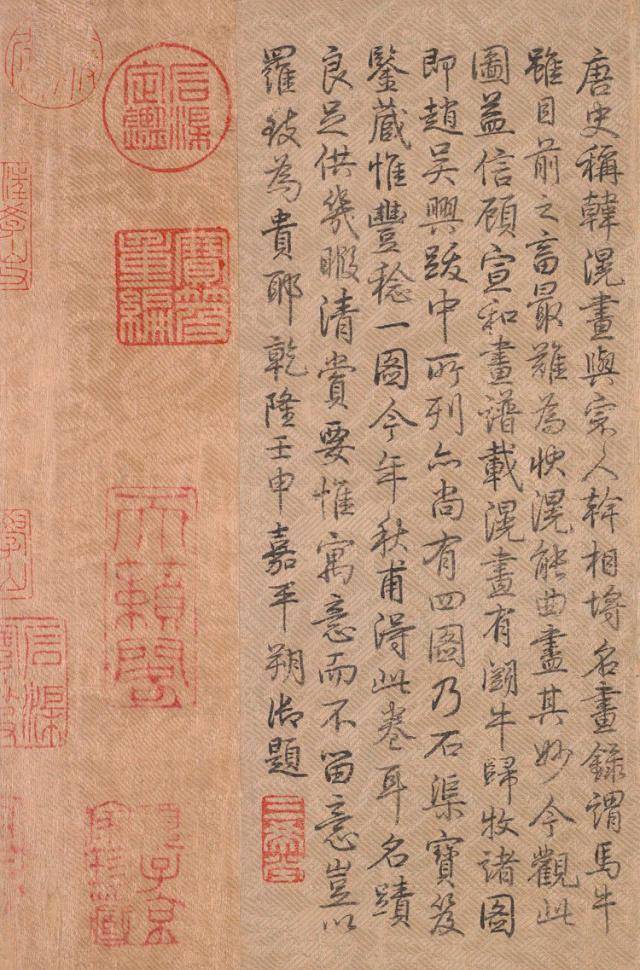 唐史稱韓滉畫與宗人幹相埒名畫錄謂馬牛
雖目前之畜最難為狀滉能曲盡其妙今觀此
圖益信顧宣和畫譜載滉畫有鬭牛歸牧諸圖
即趙吳興跋中所列亦尚有四圖乃石渠寶笈
鑒蔵惟豐稔一圖今年秋甫得此卷耳名蹟
良足供幾暇清賞要惟寓意而不留意豈以
羅致為貴耶乾隆壬申嘉平朔御題
三希堂
石渠定鑑
寶笈重編
天籟閣
項子京家珍藏